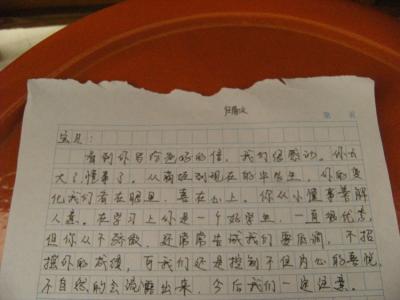 宝贝:
看到你写给爸妈的信,我们很感动。你长
大了懂事了。从
到现在的毕业生,你的变
化我们看在眼里,喜在心上。你从小懂事善解
人意。在学习上你是一个
一直很优秀,
但你从不骄傲,还常常告诫我们要低调,不招
摇你的成绩,可我们还是控制不住内心的喜悦,
不自然的会流露出来,今后我们一定注意。